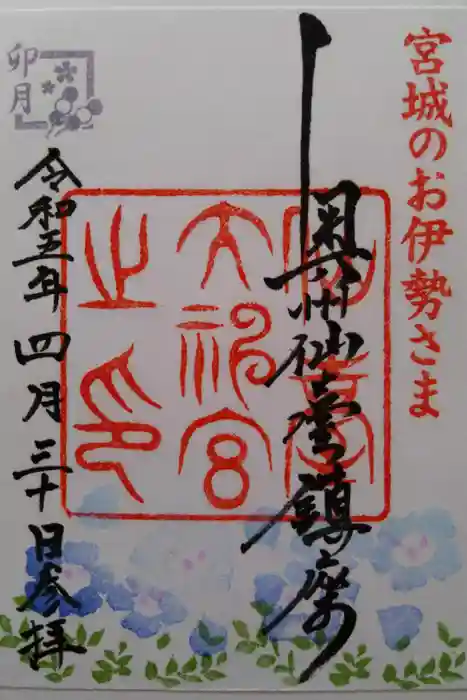 宮城のお伊勢さま
奥州仙臺鎮座
仙臺
大神宮
之印
卯月
令和五年四月三十日参拝